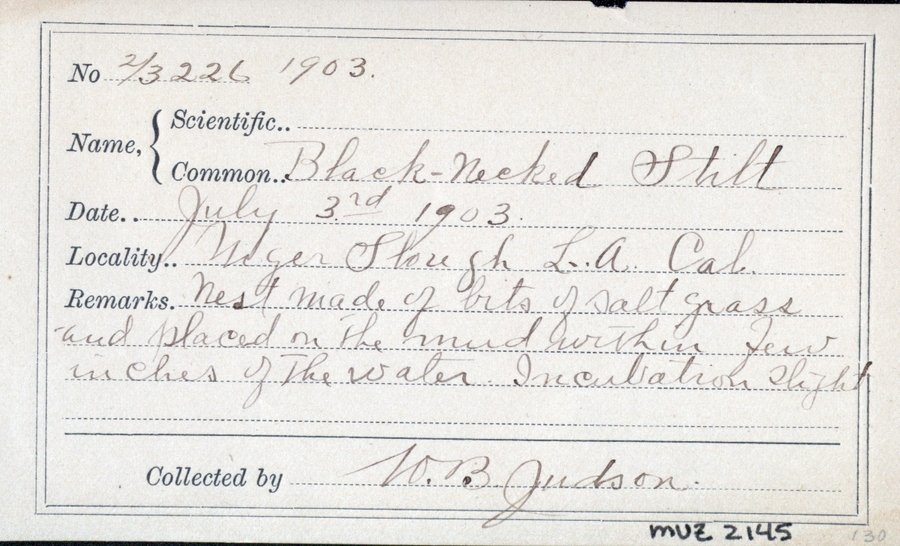 No 2/3226 1903.
Name, { Scientific..
Common.. Black-necked Stilt
Date.. July 3rd 1903.
Locality.. Niger Slough L.A. Cal.
Remarks. Nest made of bits of salt grass
and placed on the mud within few
inches of the water. Incubation slight
Collected by W.B. Judson.
MVZ 2145
130